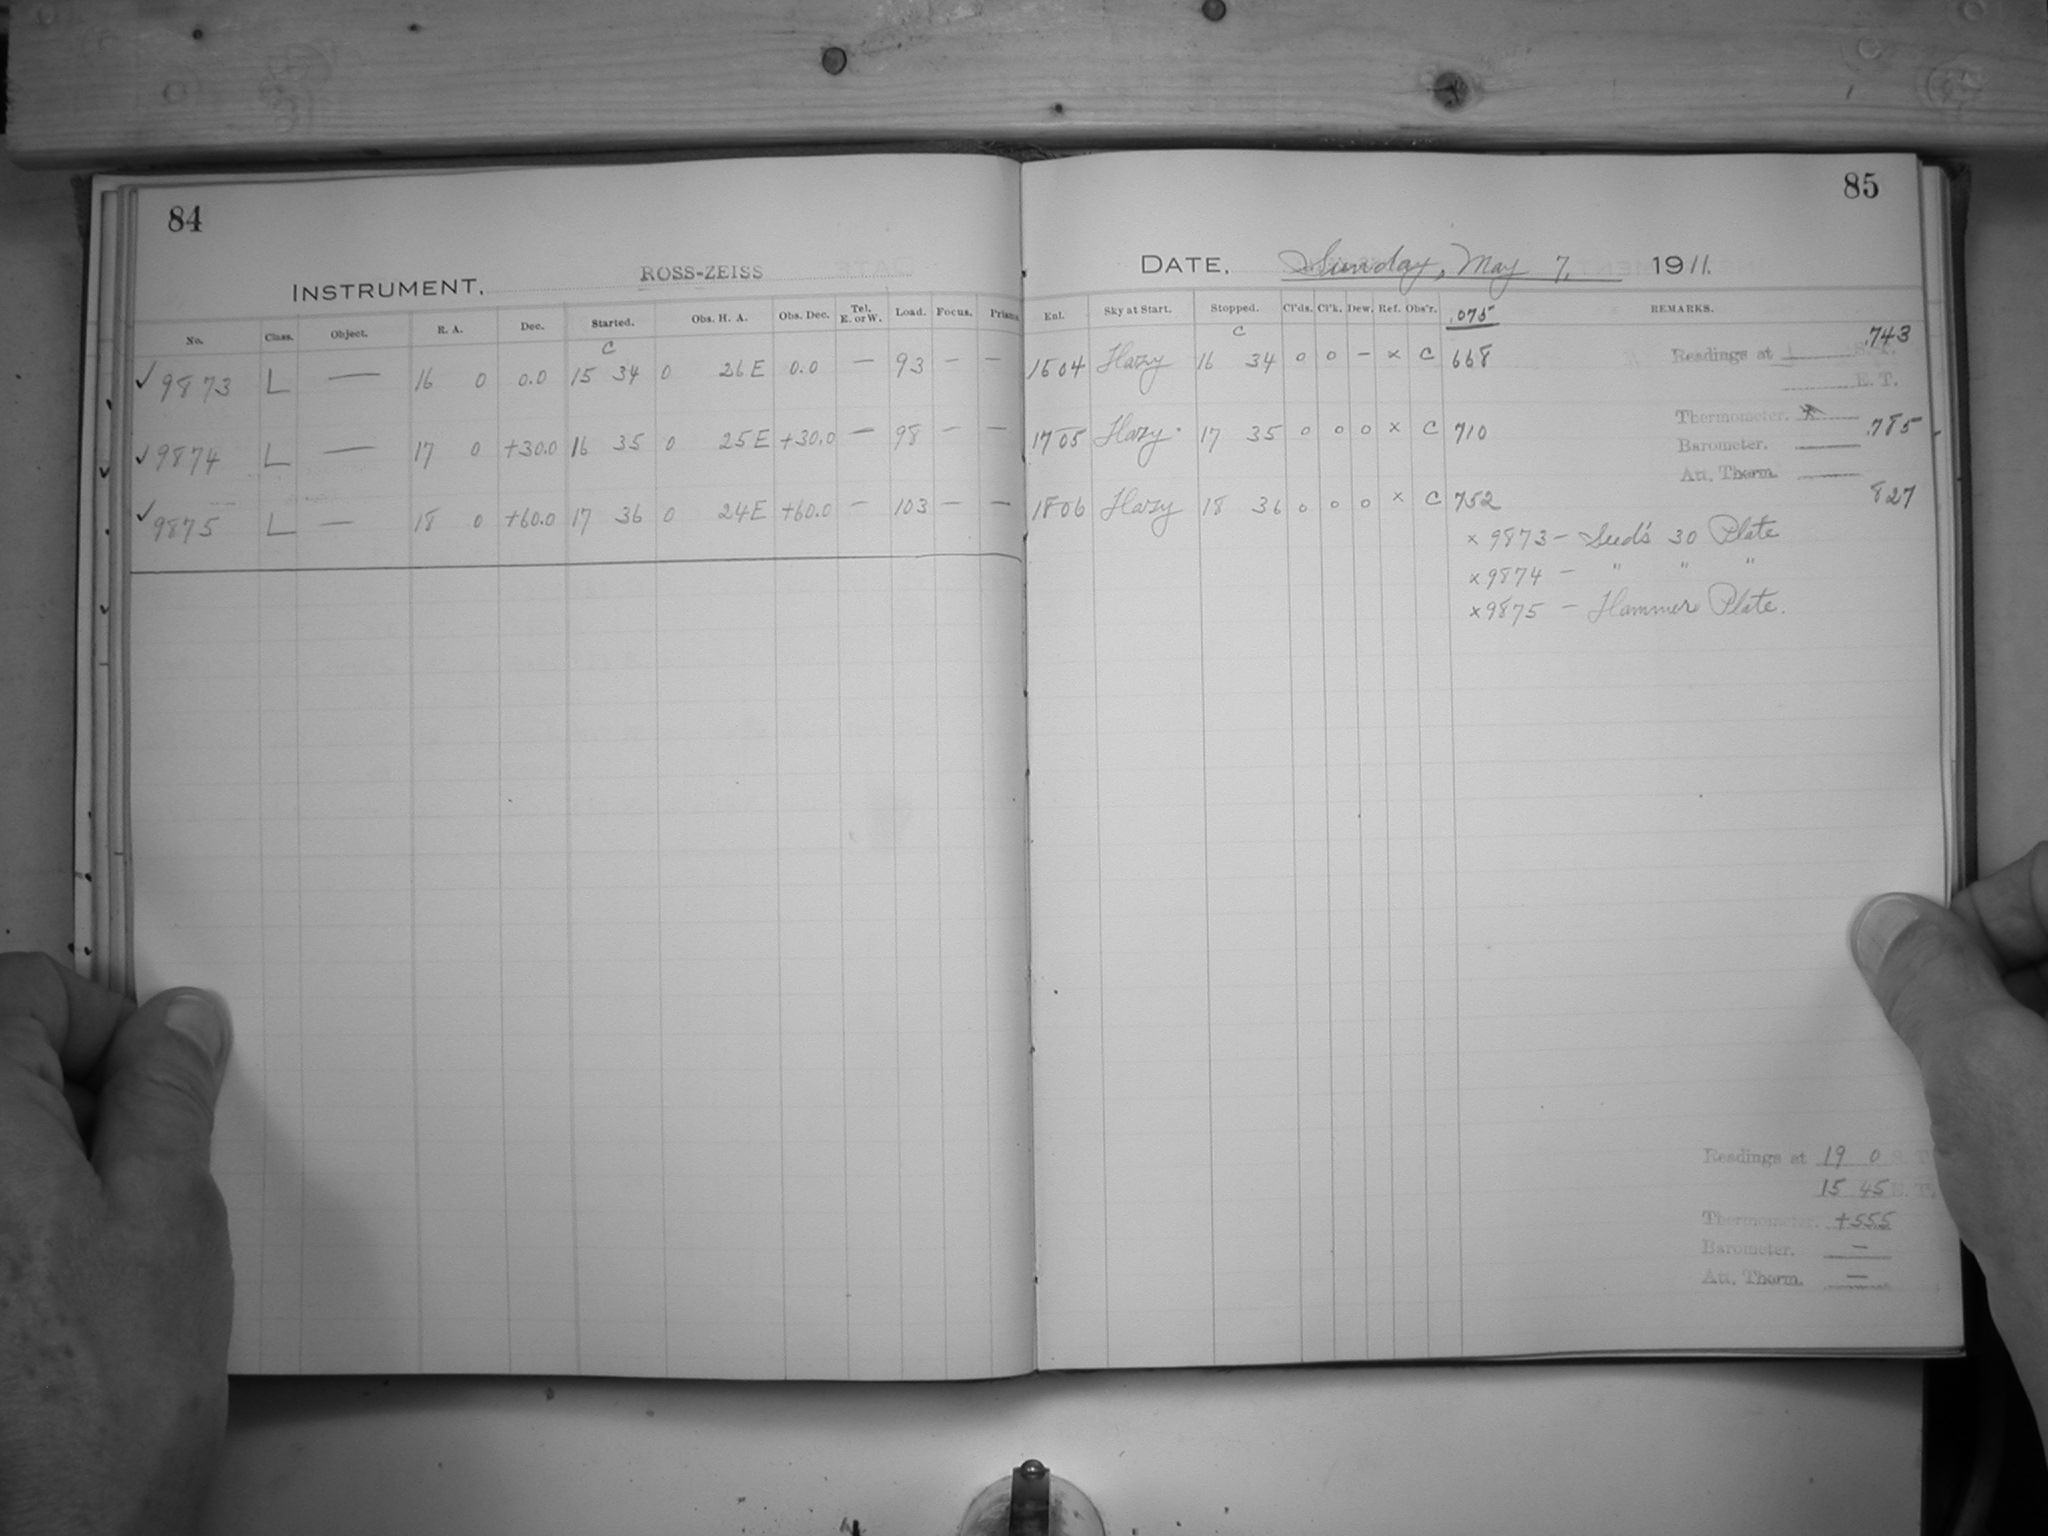 84
INSTRUMENT, ROSS-ZEISS
No. Class. Object. R. A. Dec. Started. Obs. H. A. Obs. Dec. Tel. E. or W. Load. Focus. Prism
C
✓ 9873 L — 16 0 0.0 15 34 0 26E 0.0 — 93 — —
✓ 9874 L — 17 0 +30.0 16 35 0 25E +30.0 — 98 — —
✓ 9875 L — 18 0 +60.0 17 36 0 24E +60.0 — 103 — —
85
DATE, Sunday, May 7, 1911.
Enl. Sky at Start. Stopped. Cl'ds. Cl'k. Dew. Ref. Obs'r. .075 REMARKS.
C
1604 Hazy 16 34 0 0 — x C 668 .743
Readings at S. T.
E. T.
Thermometer. x
1705 Hazy 17 35 0 0 0 x C 710 .785
Barometer. —
Att. Therm. —
1806 Hazy 18 36 0 0 0 x C 752 827
x 9873 — Seed's 30 Plate
x 9874 — " " "
x 9875 — Hammer Plate.
Readings at 19 0 S. T.
15 45 E. T.
Thermometer. +55.5
Barometer. —
Att. Therm. —